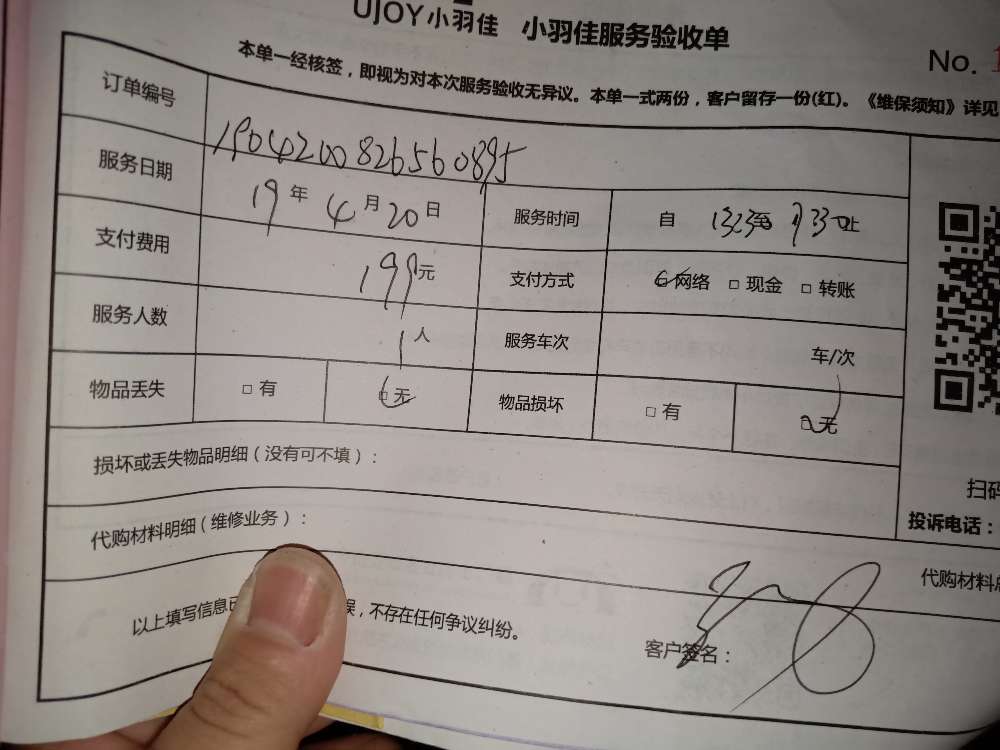 UJOY小羽佳 小羽佳服务验收单
No.
本单一经核签，即视为对本次服务验收无异议。本单一式两份，客户留存一份(红)。《维保须知》详见
订单编号 1904200826560895
服务日期 19年 4月 20日 服务时间 自
支付费用 199元 支付方式 网络 □ 现金 □ 转账
服务人数 1人 服务车次 车/次
物品丢失 □ 有 □ 无 物品损坏 □ 有 □ 无
损坏或丢失物品明细（没有可不填）：
扫码
投诉电话：
代购材料明细（维修业务）：
代购材料总
以上填写信息已 误，不存在任何争议纠纷。
客户签名：